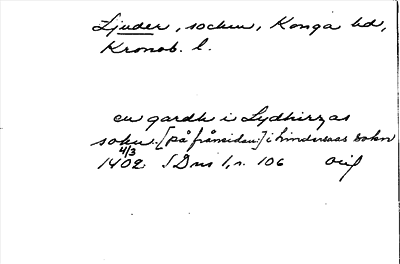 Ljuder, socken, Konga hd,
Kronob. l.
en gardh i Lydhirzas
sokn. [på frånsidan:] i hinderaas sokn
4/3
1402. SDns 1, s. 106 Orig